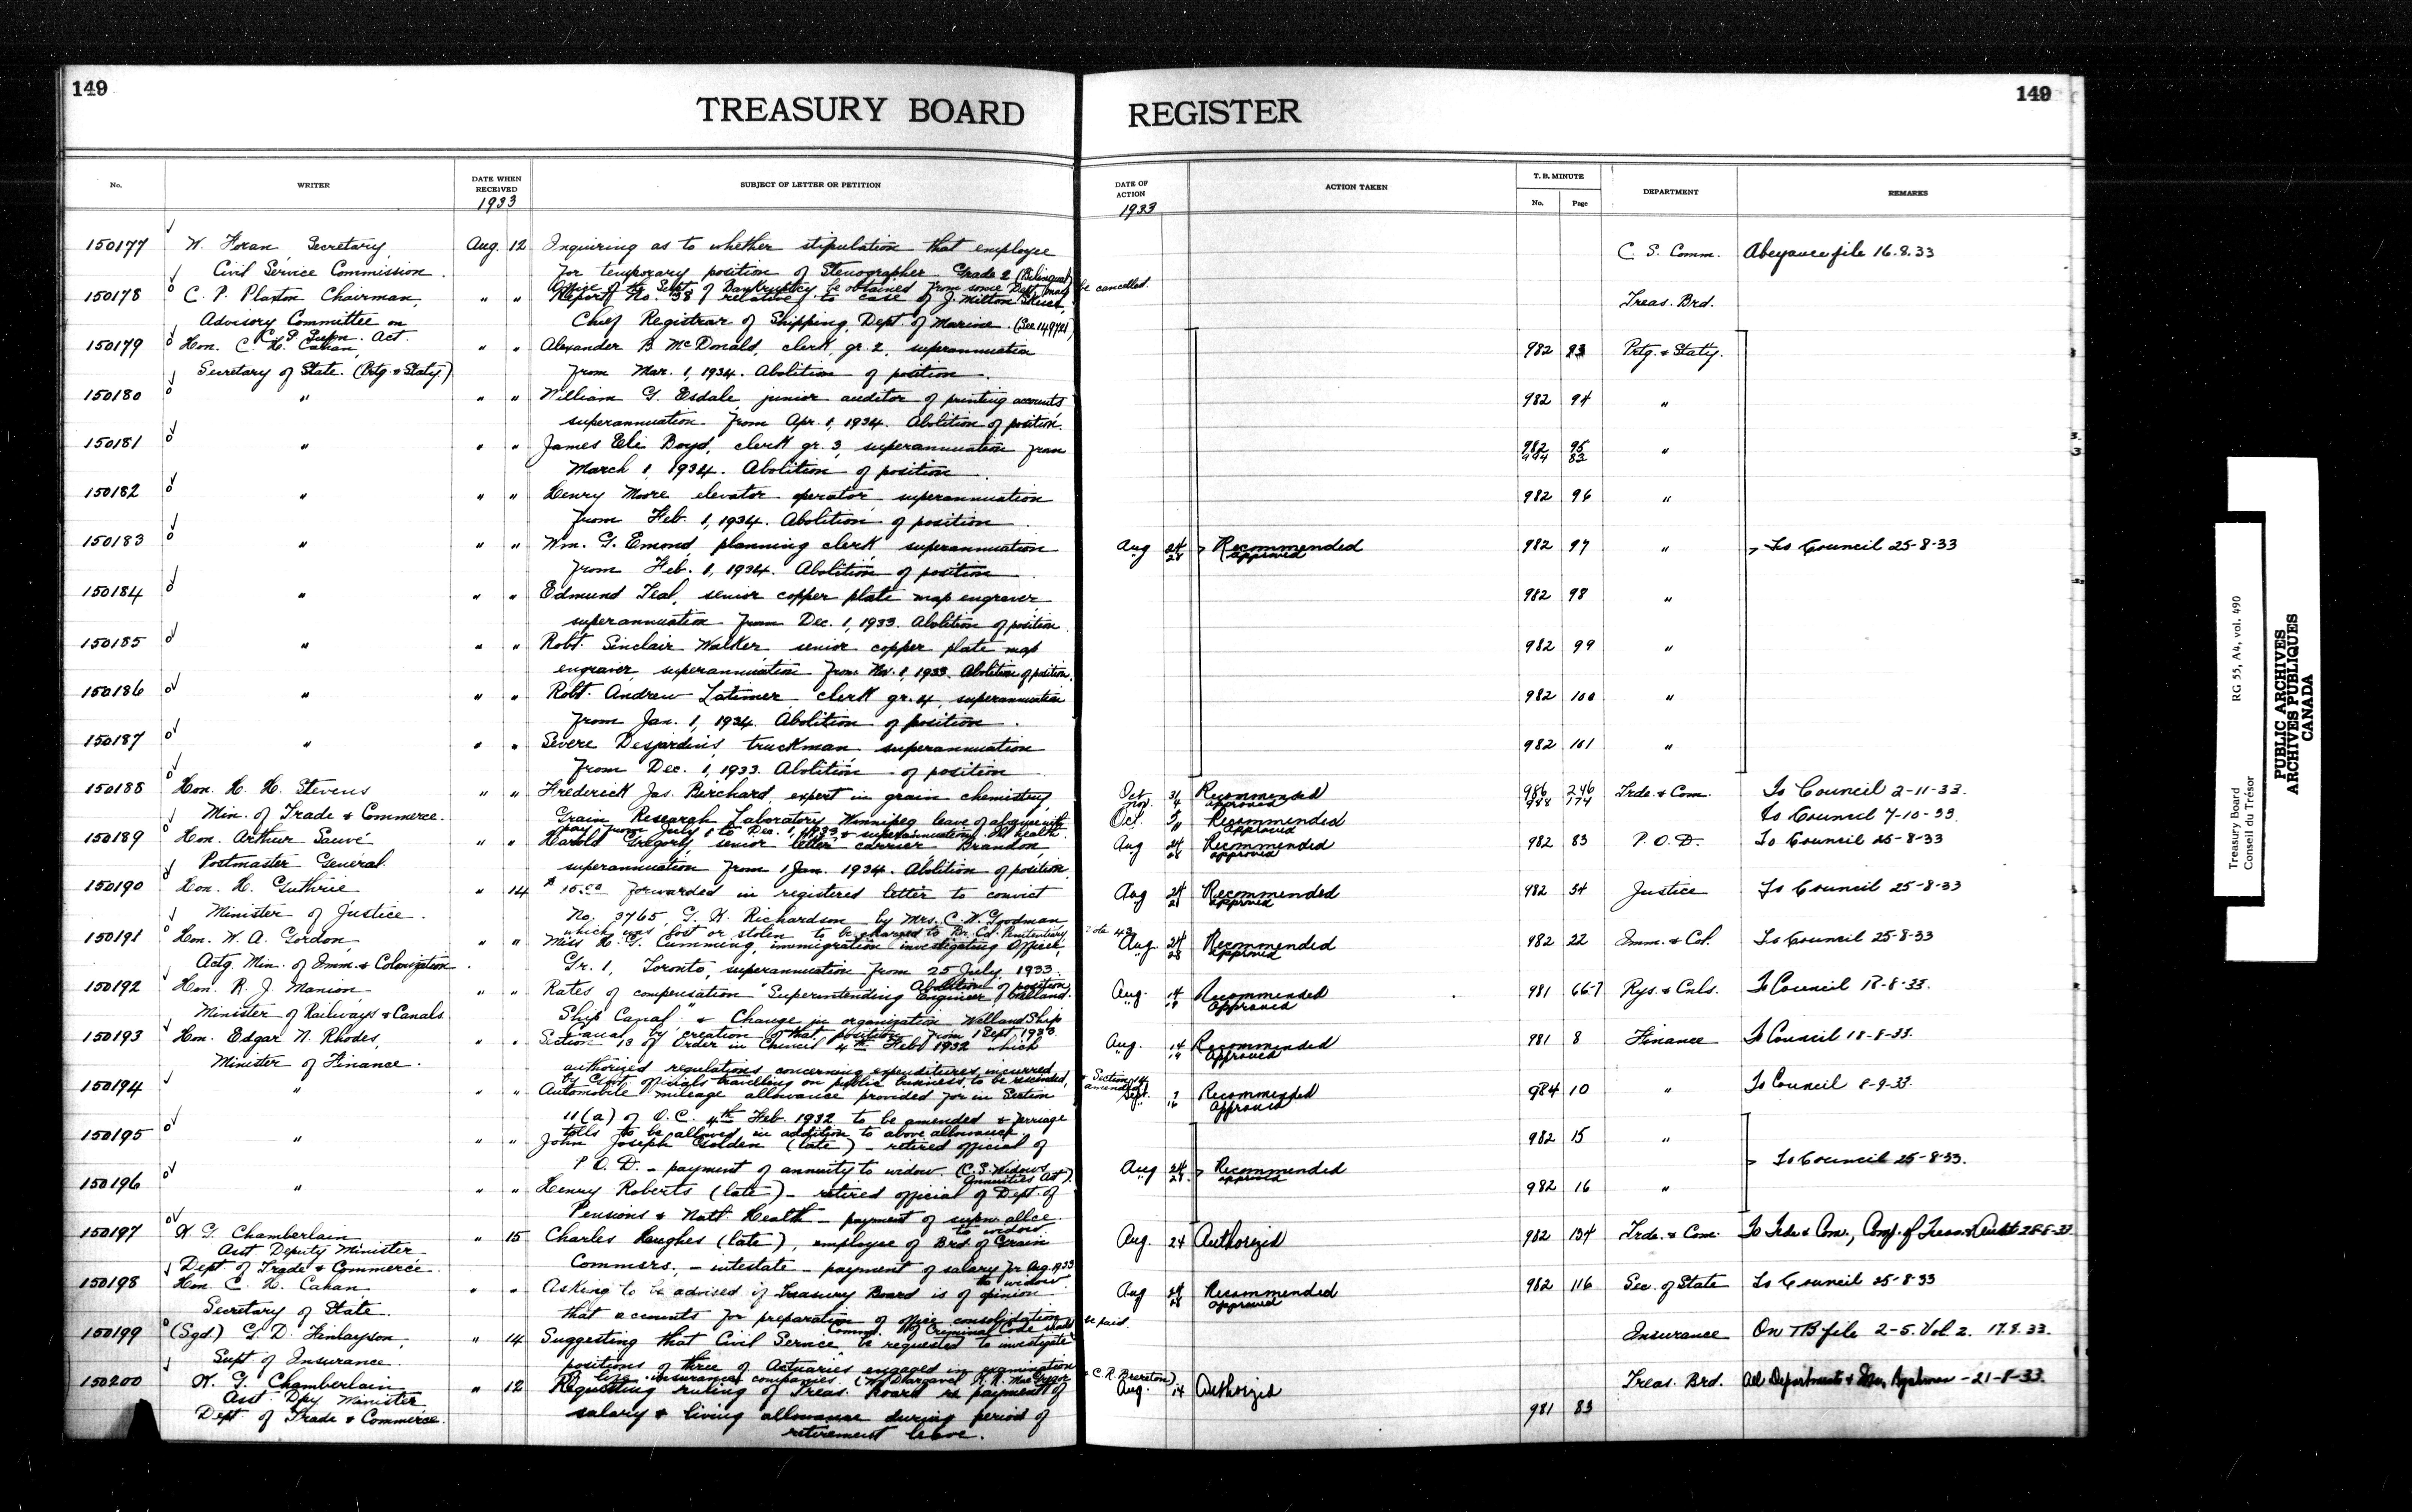 149
TREASURY BOARD REGISTER
149
No. WRITER DATE WHEN RECEIVED SUBJECT OF LETTER OR PETITION DATE OF ACTION ACTION TAKEN T. B. MINUTE No. Page DEPARTMENT REMARKS
1933 1933
150177 W. Foran Secretary, Aug. 12 Inquiring as to whether stipulation that employee C. S. Comm. Abeyance file 16.8.33
Civil Service Commission. for temporary position of Stenographer Grade 2 (Bilingual)
Office of the Supt. of Bankruptcy be obtained from some Dept. may be cancelled.
150178 C. P. Plaxton Chairman, " " Report No. 38 relative to case of J. Milton Treas. Brd.
Advisory Committee on Chief Registrar of Shipping, Dept. of Marine. (See 149721)
C. S. Supn. Act.
150179 Hon. C. H. Cahan, " " Alexander B. McDonald, clerk, gr. 2, superannuation 982 93 Prtg. & Staty.
Secretary of State. (Prtg & Staty) from Mar. 1, 1934. Abolition of position.
150180 " " " William G. Esdale junior auditor of printing accounts 982 94 "
superannuation from Apr. 1, 1934. Abolition of position.
150181 " " " James Eli Boyd, clerk gr. 3, superannuation from 982 95 "
994 83
March 1, 1934. Abolition of position
150182 " " " Henry Moore elevator operator, superannuation 982 96 "
from Feb. 1, 1934. Abolition of position.
150183 " " " Wm. G. Emond, planning clerk, superannuation Aug 24 Recommended 982 97 " To Council 25-8-33
28 approved
from Feb. 1, 1934. Abolition of position.
150184 " " " Edmund Teal, senior copper plate map engraver, 982 98 "
superannuation from Dec. 1, 1933. Abolition of position.
150185 " " " Robt. Sinclair Walker, senior copper plate map 982 99 "
engraver, superannuation from Nov. 1, 1933. Abolition of position.
150186 " " " Robt. Andrew Latimer clerk gr. 4, superannuation 982 100 "
from Jan. 1, 1934. Abolition of position.
150187 " " " Severe Desjardins, truckman, superannuation 982 101 "
from Dec. 1, 1933. Abolition of position
150188 Hon. H. H. Stevens " " Frederick Jas. Birchard, expert in grain chemistry, Oct. 31 Recommended 986 246 Trde. & Com. To Council 2-11-33.
Nov. 4 approved 988 174
Min. of Trade & Commerce. Grain Research Laboratory Winnipeg leave of absence with Oct. 5 Recommended To Council 7-10-33
11 approved
pay from July 1 to Dec. 1, 1933 & superannuation. Ill health.
150189 Hon. Arthur Sauvé " " Harold Gregory, senior letter carrier Brandon, Aug 24 Recommended 982 83 P. O. D. To Council 25-8-33
28 approved
Postmaster General superannuation from 1 Jan. 1934. Abolition of position.
150190 Hon. H. Guthrie " 14 $15.00 forwarded in registered letter to convict Aug 24 Recommended 982 54 Justice To Council 25-8-33
28 approved
Minister of Justice. No. 3765 G. H. Richardson by Mrs. C. W. Goodman
which was lost or stolen to be charged to Br. Col. Penitentiary
150191 Hon. W. A. Gordon, " " Miss H. G. Cumming, immigration investigating officer, Aug. 24 Recommended 982 22 Imm. & Col. To Council 25-8-33
28 approved
Actg. Min. of Imm. & Colonization. Gr. 1, Toronto, superannuation from 25 July, 1933.
Abolition of position
150192 Hon. R. J. Manion " " Rates of compensation "Superintending Engineer Welland Aug. 14 Recommended 981 66-7 Rys. & Cnls. To Council 18-8-33.
Approved
Minister of Railways & Canals Ship Canal" & Change in organization Welland Ship
Canal by creation of that position from 1 Sept. 1933
150193 Hon. Edgar N. Rhodes, " " Section 13 of Order in Council 4th Feb. 1932 which Aug. 14 Recommended 981 8 Finance To Council 18-8-33.
Approved
Minister of Finance. authorized regulations concerning expenditures incurred
by Govt. officials travelling on public business, to be rescinded, & Section 14 amended
150194 " " " Automobile mileage allowance provided for in Section Sept. Recommended 984 10 " To Council 8-9-33.
Approved
11(a) of O.C. 4th Feb. 1932 to be amended & ferriage
tolls to be allowed in addition to above allowance.
150195 " " " John Joseph Golden (late) - retired official of 982 15 "
P. O. D. - payment of annuity to widow. (C. S. Widows Annuities Act). Aug 24 Recommended To Council 25-8-33.
28 approved
150196 " " " Henry Roberts (late) - retired official of Dept. of 982 16 "
Pensions & Natl Health - payment of supn. allce
to widow.
150197 H. G. Chamberlain " 15 Charles Hughes (late), employee of Brd. of Grain Aug. 24 Authorized 982 134 Trde. & Com. To Trde & Com.,
Asst Deputy Minister
Dept. of Trade & Commerce. Commrs, - intestate - payment of salary for Aug. 1933
to widow
150198 Hon. C. H. Cahan, " " Asking to be advised if Treasury Board is of opinion Aug 24 Recommended 982 116 Sec. of State To Council 25-8-33
28 approved
Secretary of State. that accounts for preparation of office consolidation
of Criminal Code shall be paid.
150199 (Sgd.) G. D. Finlayson, " 14 Suggesting that Civil Service Comm. be requested to investigate Insurance On TB file 2-5. Vol 2. 17.8.33.
Supt. of Insurance. positions of three of Actuaries engaged in examination
of life insurance companies. (W. Dhargavel H. R. MacGregor & C. R. Brereton)
150200 H. G. Chamberlain " 12 Requesting ruling of Treas. Board re payment of Aug. 14 Authorized Treas. Brd. All Departments -21-8-33.
Asst. Dpy Minister 981 83
Dept of Trade & Commerce. salary & living allowance during period of
retirement leave.
Treasury Board RG 55, A4, vol. 490
Conseil du Trésor
PUBLIC ARCHIVES
ARCHIVES PUBLIQUES
CANADA